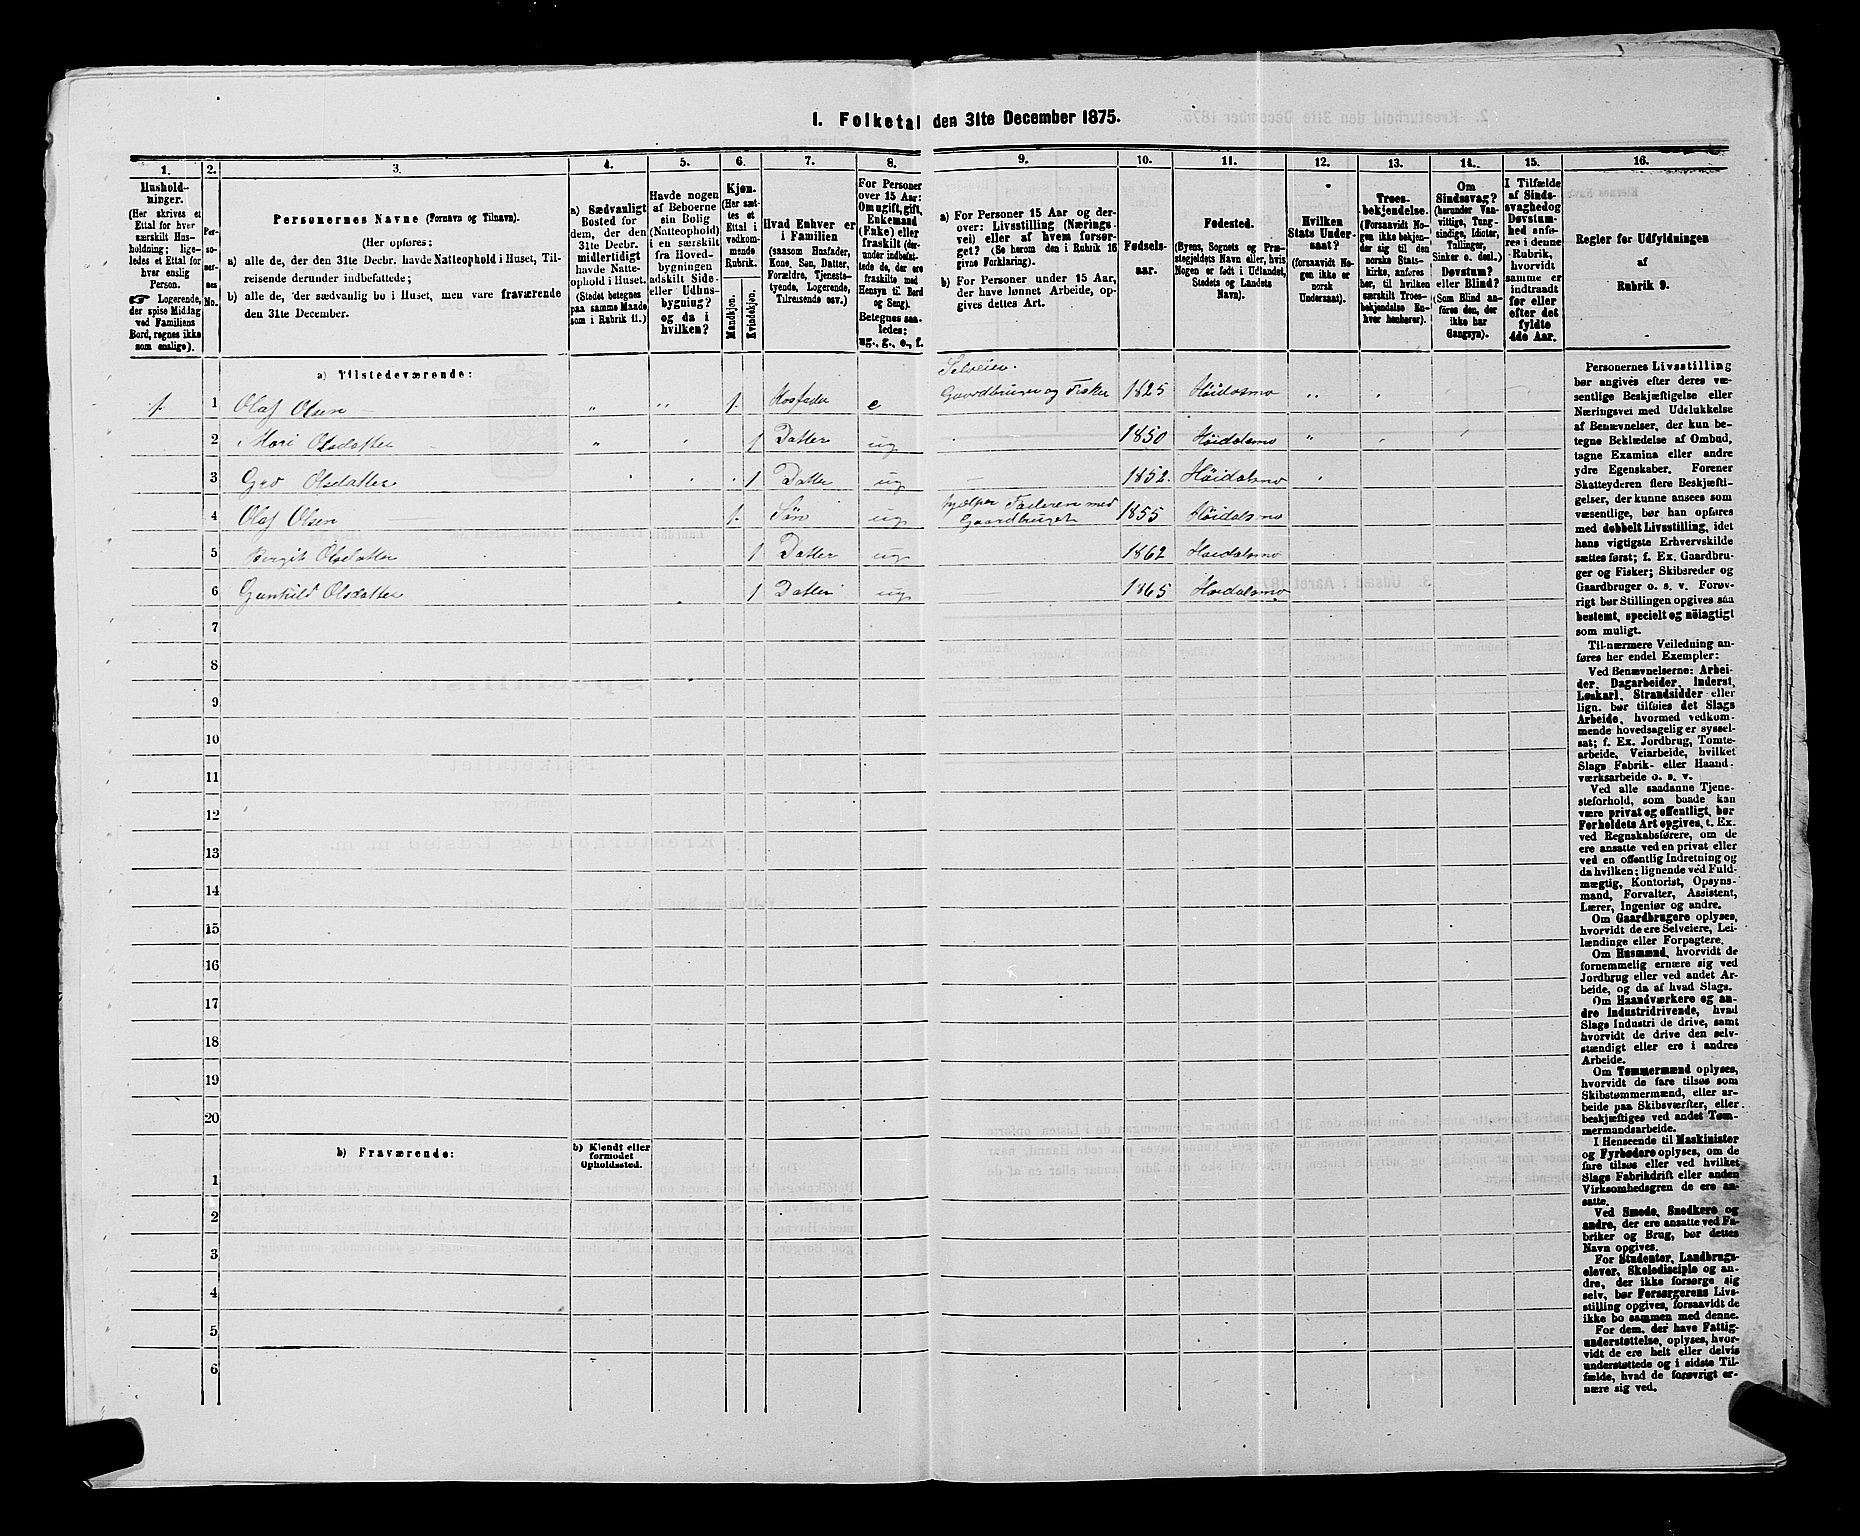 1. Folketal den 31te December 1875.
1. 2. 3. 4. 5. 6. 7. 8. 9. 10. 11. 12. 13. 14. 15. 16.
Hushold-
ninger.
(Her skrives et
Ettal for hver
særskilt Hus-
holdning; lige-
ledes et Ettal for
hver enslig
Person.
☞ Logerende,
der spise Middag
ved Familiens
Bord, regnes ikke
som enslige).
Per-
so-
ner-
nes
No.
Personernes Navne (Fornavn og Tilnavn).
(Her opføres;
a) alle de, der den 31te Decbr. havde Natteophold i Huset, Til-
reisende derunder indbefattede;
b) alle de, der sædvanlig bo i Huset, men vare fraværende
den 31te December.
a) Sædvanligt
Bosted for
dem, der den
31te Decbr.
midlertidigt
havde Natte-
ophold i Huset.
(Stedet betegnes
paa samme Maade
som i Rubrik 11.)
Havde nogen
af Beboerne
sin Bolig
(Natteophold)
i en særskilt
fra Hoved-
bygningen
adskilt Side-
eller Udhus-
bygning?
og da i
hvilken?
Kjøn.
(Her sæt-
tes et
Ettal i
vedkom-
mende
Rubrik.
Mandkjøn.
Kvindekjøn.
Hvad Enhver er
i Familien
(saasom Husfader,
Kone, Søn, Datter,
Forældre, Tjeneste-
tyende, Logerende,
Tilreisende osv.)
For Personer
over 15 Aar:
Om ugift, gift,
Enkemand
(Enke) eller
fraskilt (der-
under indbefat-
tede de, der ere
fraskilte med
Hensyn til Bord
og Seng).
Betegnes saa-
ledes:
ug., g., e., f.
a) For Personer 15 Aar og der-
over: Livsstilling (Nærings-
vei) eller af hvem forsør-
get? (Se herom den i Rubrik 16
givne Forklaring).
b) For Personer under 15 Aar,
der have lønnet Arbeide, op-
gives dettes Art.
Fødsels-
aar.
Fødested.
(Byens, Sognets og Præ-
stegjeldets Navn eller, hvis
Nogen er født i Udlandet,
Stedets og Landets
Navn).
Hvilken
Stats Under-
saat?
(forsaavidt No-
gen ikke er
norsk
Undersaat).
Troes-
bekjendelse.
(Forsaavidt No-
gen ikke bekjen-
der sig til den
norske Stats-
kirke, anføres
her, til hvilken
særskilt Troes-
bekjendelse En-
hver henhører).
Om
Sindssvag?
(herunder Van-
vittige, Tung-
sindige, Idioter,
Tullinger,
Sinker o. desl.)
Døvstum?
eller Blind?
(Som Blind an-
føres den, der
ikke har
Gangsyn).
I Tilfælde
af Sinds-
svaghed og
Døvstum-
hed anfø-
res i denne
Rubrik,
hvorvidt
samme er
indtraadt
før eller
efter det
fyldte
4de Aar.
Regler for Udfyldningen
af
Rubrik 9.
a) Tilstedeværende:
Selveier.
1. 1 Olaf Olsen " " 1. Husfader e Gaardbruger og Fisker 1825 Höidalsmo
2 Mari Olsdatter " 1 Datter ug 1850 Höidalsmo "
3 Gro Olsdatter 1 Datter ug 1852. Höidalsmo
4 Olaf Olsen 1. Søn ug hjælper Faderen med Gaardbruget 1855 Höidalsmo
5 Bergit Olsdatter 1 Datter ug 1862 Höidalsmo
6 Gunhild Olsdatter 1 Datter ug 1865 Höidalsmo
7
8
9
10
11
12
13
14
15
16
17
18
19
20
b) Fraværende:
b) Kjendt eller
formodet
Opholdssted.
1
2
3
4
5
6
Personernes Livsstilling
bør angives efter deres væ-
sentlige Beskjæftigelse eller
Næringsvei med Udelukkelse
af Benævnelser, der kun be-
tegne Beklædelse af Ombud,
tagne Examina eller andre
ydre Egenskaber. Forener
Skatteyderen flere Beskjæfti-
gelser, der kunne ansees som
væsentlige, bør han opføres
med dobbelt Livsstilling, idet
hans vigtigste Erhvervskilde
sættes først; f. Ex. Gaardbru-
ger og Fisker; Skibsreder og
Gaardbruger o. s. v. Forøv-
rigt bør Stillingen opgives saa
bestemt, specielt og nöiagtigt
som muligt.
Til nærmere Veiledning an-
føres her endel Exempler:
Ved Benævnelserne: Arbei-
der, Dagarbeider, Inderst,
Løskarl, Strandsidder eller
lign. bør tilføies det Slags
Arbeide, hvormed vedkom-
mende hovedsagelig er syssel-
sat; f. Ex. Jordbrug, Tomte-
arbeide, Veiarbeide, hvilket
Slags Fabrik- eller Haand-
værksarbeide o. s. v.
Ved alle saadanne Tjene-
steforhold, som baade kan
være privat og offentligt, bør
Forholdets Art opgives, t. Ex.
ved Regnskabsførere, om de
ere ansatte ved en privat eller
ved en offentlig Indretning og
da hvilken; lignende ved Fuld-
mægtig, Kontorist, Opsyns-
mand, Forvalter, Assistent,
Lærer, Ingeniør og andre.
Om Gaardbrugere oplyses,
hvorvidt de ere Selveiere, Lei-
lændinge eller Forpagtere.
Om Husmænd, hvorvidt de
fornemmelig ernære sig ved
Jordbrug eller ved andet Ar-
beide, og da af hvad Slags.
Om Haandværkere og an-
dre Industridrivende, hvad
Slags Industri de drive, samt
hvorvidt de drive den selv-
stændigt eller ere i andres
Arbeide.
Om Tømmermænd oplyses,
hvorvidt de fare tilsøs som
Skibstømmermænd, eller ar-
beide paa Skibsværfter, eller
beskjæftiges ved andet Tøm-
mermandsarbeide.
I Henseende til Maskinister
og Fyrbødere oplyses, om de
fare tilsøs eller ved hvilket
Slags Fabrikdrift eller anden
Virksomhedsgren de ere an-
satte.
Ved Smede, Snedkere og
andre, der ere ansatte ved Fa-
briker og Brug, bør dettes
Navn opgives.
For Studenter, Landbrugs-
elever, Skoledisciple og an-
dre, der ikke forsørge sig
selv, bør Forsørgerens Livs-
stilling opgives, forsaavidt de
ikke bo sammen med denne.
For dem, der have Fattig-
understøttelse, oplyses, hvor-
vidt de ere helt eller delvis
understøttede og i sidste Til-
fælde, hvad de forøvrigt er-
nære sig ved.